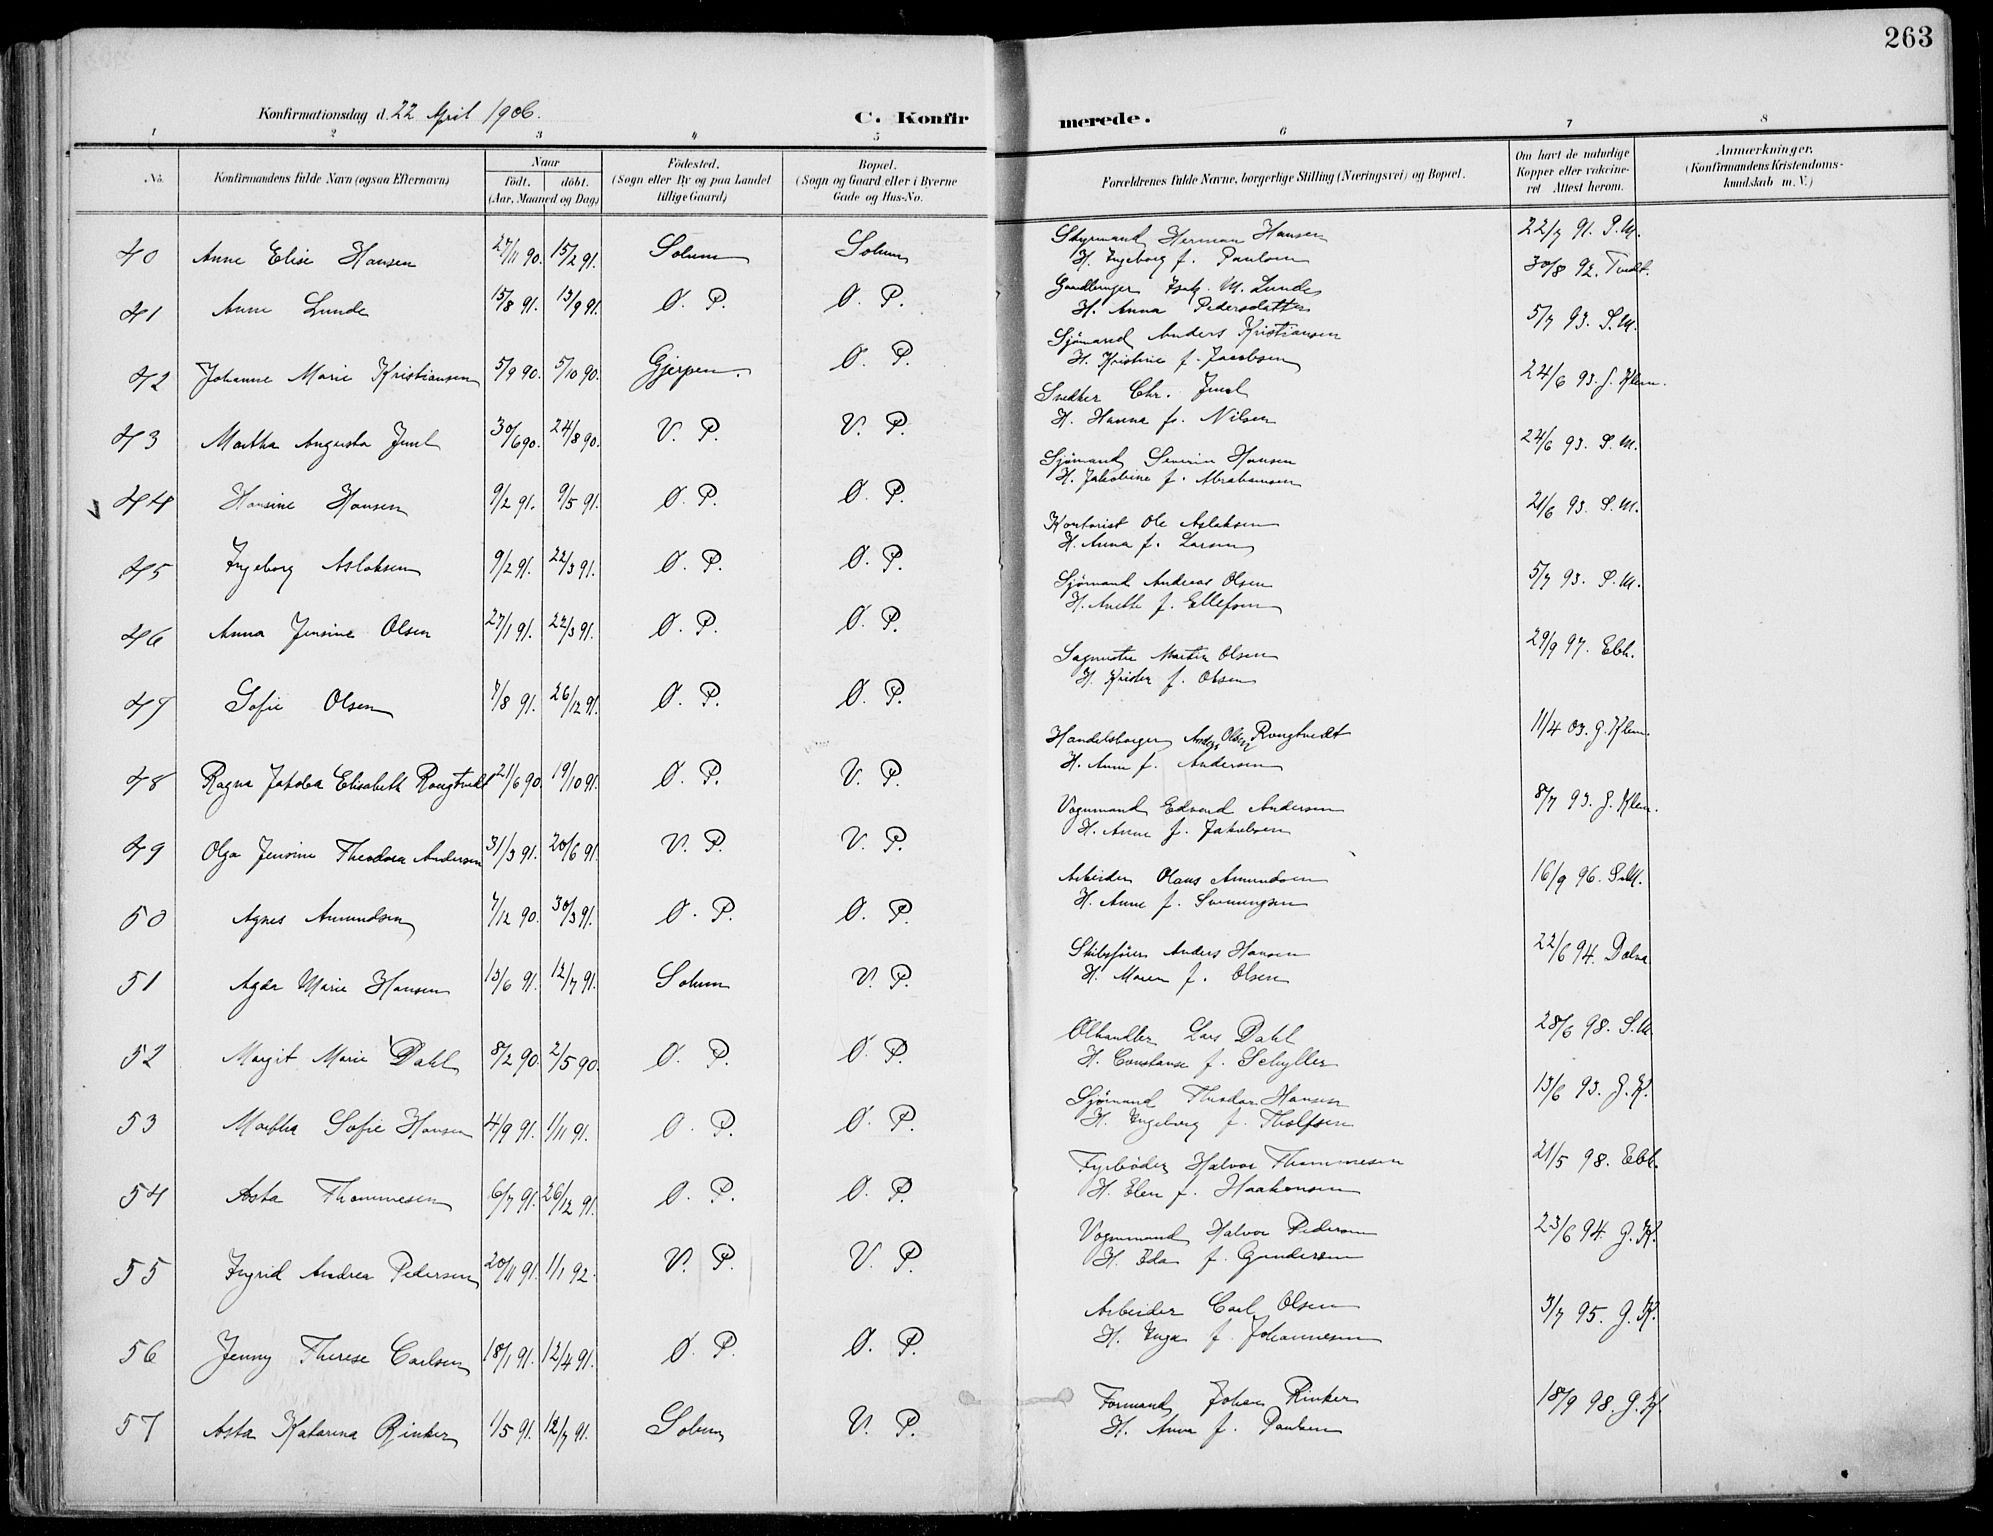 263
Konfirmationsdag d. 22 April 1906.
C. Konfirmerede.
1 2 3 4 5 6 7 8
No.
Konfirmandens fulde Navn (ogsaa Efternavn)
Naar
født. døbt.
(Aar, Maaned og Dag)
Fødested.
(Sogn eller By og paa Landet
tillige Gaard)
Bopæl.
(Sogn og Gaard eller i Byerne
Gade og Hus-No.
Forældrenes fulde Navne, borgerlige Stilling (Næringsvei) og Bopæl.
Om havt de naturlige
Kopper eller vakcine-
ret Attest herom.
Anmærkninger.
(Konfirmandens Kristendoms-
kundskab m. V.)
40 Anne Elise Hansen 27/11 90. 15/2 91. Solum Solum Styrmand Herman Hansen 22/7 91. S.M.
H. Ingeborg f. Paulsen
41 Anne Lunde 15/8 91. 13/9 91. Ø. P. Ø. P. M. Lunde 30/8 92. Tvedt.
H. Anna Pedersdatter
42 Johanne Marie Kristiansen 5/9 90. 5/10 90. Gjerpen. Ø. P. Sjømand Anders Kristiansen 5/7 93. S.M.
H. Kristine f. Jacobsen
43 Martha Augusta Juul 30/6 90. 24/8 90. V. P. V. P. Snedker Chr. Juul 24/6 93. J. Klem.
H. Hanna f. Nilsen
44 Hansine Hansen 9/2 91. 9/5 91. Ø. P. Ø. P. Sjømand Severin Hansen 24/6 93. S.M.
H. Jakobine f. Abrahamsen
45 Ingeborg Aslaksen 9/2 91. 22/3 91. Ø. P. Ø. P. Kontorist Ole Aslaksen 21/6 93. S.M.
H. Anna f. Larsen
46 Anna Jensine Olsen 27/1 91. 22/3 91. Ø. P. Ø. P. Sjømand Andreas Olsen 5/7 93. S.M.
H. Anette f. Ellefsen
47 Sofie Olsen 7/8 91. 26/12 91. Ø. P. Ø. P. Sagmester Martin Olsen 29/9 97. Ebh.
H. f. Olsen
48 Ragna Jakobea Elisabeth Rougtvedt 21/6 90. 19/10 91. Ø. P. V. P. Handelsborger Anders Olsen Rougtvedt 11/4 03. J. Klem.
H. Anne f. Andersen
49 Olga Jensine Theodora Andersen 31/3 91. 20/6 91. V. P. V. P. Vognmand Edvard Andersen 8/7 93. J. Klem.
H. Anne f. Jakobsen
50 Agnes Amundsen 7/12 90. 30/3 91. Ø. P. Ø. P. Arbeider Olaus Amundsen 16/9 96. S.M.
H. Anne f. Svenningsen
51 Agda Marie Hansen 13/6 91. 12/7 91. Solum V. P. Skibsfører Anders Hansen 22/6 94. Dølva
H. Maren f. Olsen
52 Margit Marie Dahl 8/2 90. 2/5 90. Ø. P. Ø. P. Ølhandler Lars Dahl 28/6 98. S.M.
H. Constanse f. Schyller
53 Martha Sofie Hansen 4/9 91. 1/11 91. Ø. P. Ø. P. Sjømand Theodor Hansen 13/6 93. J. K.
H. Ingeborg f. Tholfsen
54 Asta Thommesen 6/7 91. 26/12 91. Ø. P. Ø. P. Fyrbøder Halvor Thommesen 21/5 98. Ebh.
H. Elen f. Haakonsen
55 Ingrid Andrea Pedersen 20/11 91. 1/1 92. V. P. V. P. Vognmand Halvor Pedersen 23/6 94. J. K.
H. Ida f. Gundersen
56 Jenny Therese Carlsen 18/1 91. 12/4 91. Ø. P. Ø. P. Arbeider Carl Olsen 3/7 95. J. K.
H. Inga f. Johannesen
57 Asta Katarina Rinker 1/5 91. 12/7 91. Solum V. P. Formand Johan Rinker 18/9 98. J. K.
H. Anna f. Paulsen